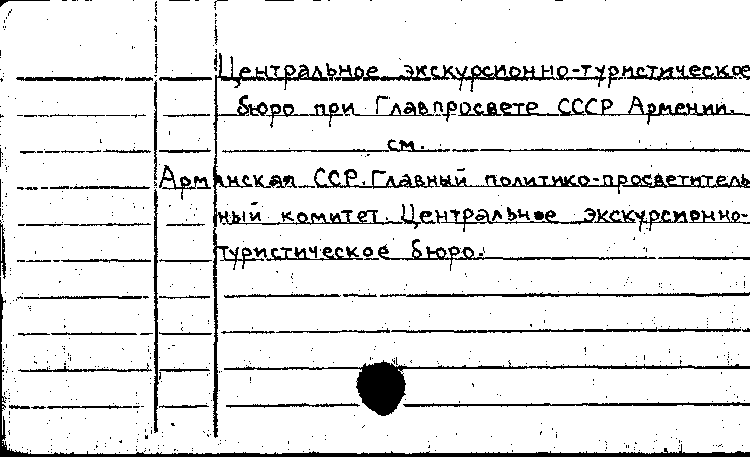 Центральное экскурсионно-туристическое
бюро при Главпросвете СССР Армении.
см.
Армянская ССР. Главный политико-просветитель
ный комитет. Центральное экскурсионно-
туристическое бюро.